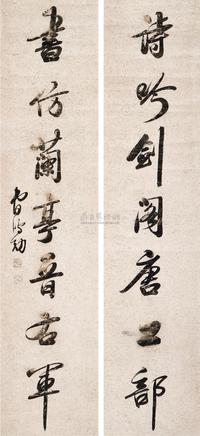 詩吟劍閣唐工部
書仿蘭亭晉右軍